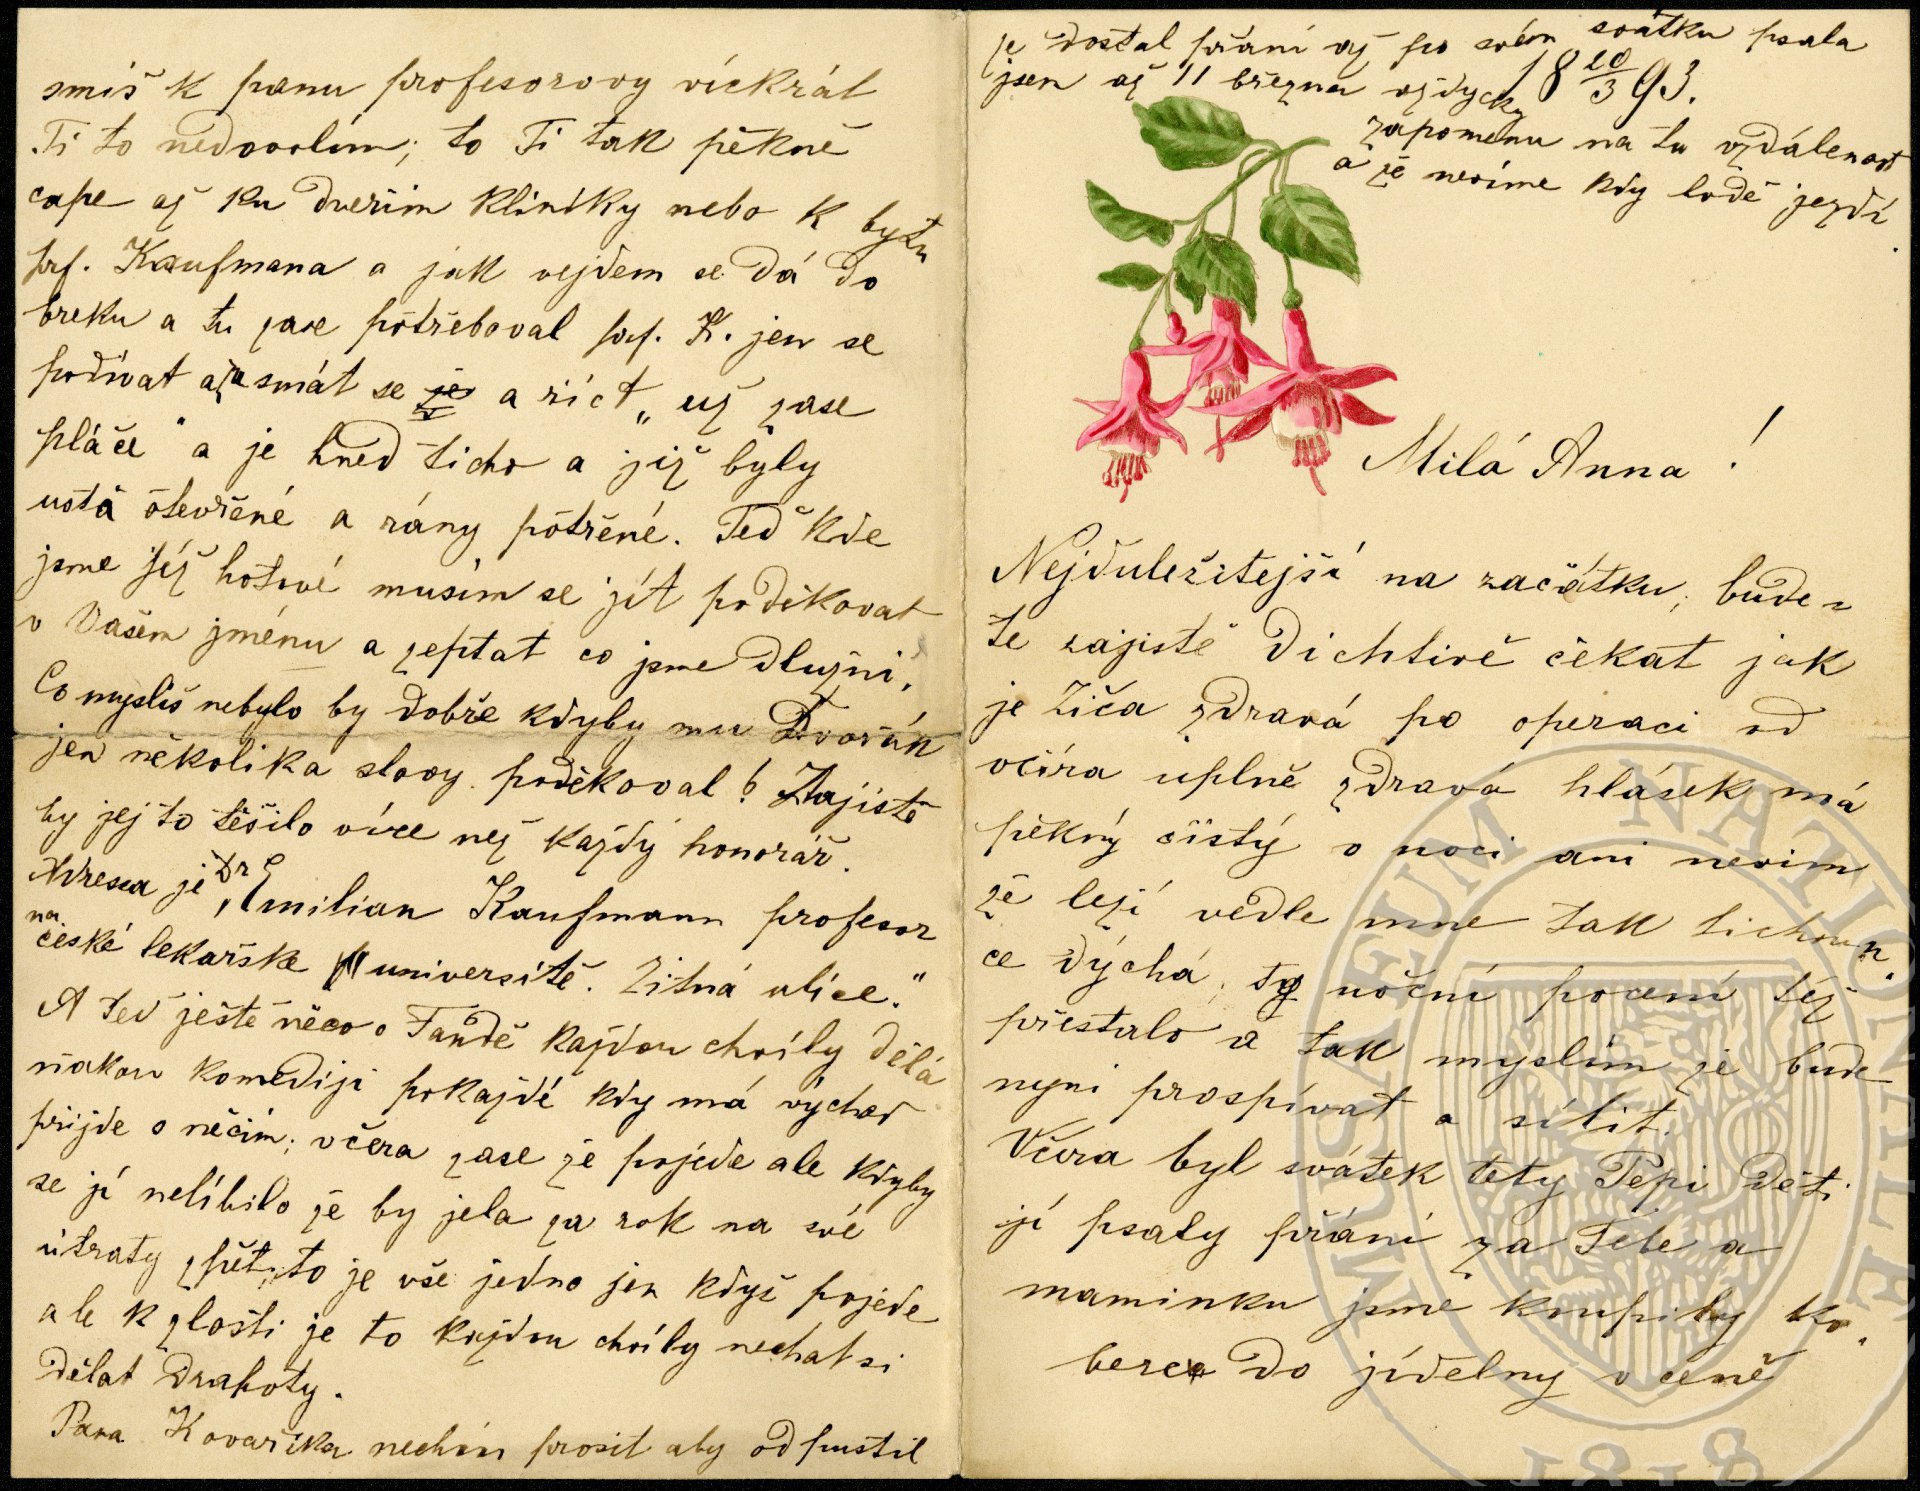 smíš k panu profesorovy víckrát
Ti to nedovolím; to Ti tak pěkně
cape až ku dveřím kliniky nebo k bytu
prf. Kaufmana a jak vejdem se dá do
breku a tu zase pótřeboval prf. K. jen se
podívat a zasmát se je a říct „už zase
pláče" a je hned ticho a již byly
ústa ótevřené a rány pótřené. Teď kde
jsme již hotové musím se jít poděkovat
v Vašem jménu a zeptat co jsme dlužni.
Co myslíš nebylo by dobře kdyby mu Dvořák
jen několika slovy poděkoval? Zajistě
by jej to těšilo více než každý honorář.
Adresa je Dr Emilian Kaufmann profesor
na české lekařske universitě. Žitná ulice."
A teď ještě něco o Fandě každou chvíly dělá
ňákou komediji pokaždé kdy má východ
přijde s něčím; včera zase že pojede ale kdyby
se jí nelíbilo že by jela za rok na své
útraty zpět, to je vše jedno jen když pojede
ale k zlosti je to každou chvíly nechat si
dělat drahoty.
Pana Kovaříka nechám prosit aby odpustil
je dostal přání až po svém svátku psala
jsem až 11 března vždycky
18 20/3 93.
zapomenu na tu vzdálenost
a že nevíme kdy lodě jezdí.
Milá Anna!
Nejduležitejší na začátku; bude-
te zajistě dichtivě čekat jak
je Ziča zdravá po operaci od
včíra úplně zdravá hlásek má
pěkný čistý v noci ani nevim
že leží vedle mne tak tichoun-
ce dýchá, to nóční pocení též
přestalo a tak myslím že bude
nyni prospívat a sílit.
Včera byl svátek tety Pepi děti
jí psaly přání za Tebe a
maminku jsme koupily ko-
berec do jídelny v ceně
MUSEUM NATIONALE
1818